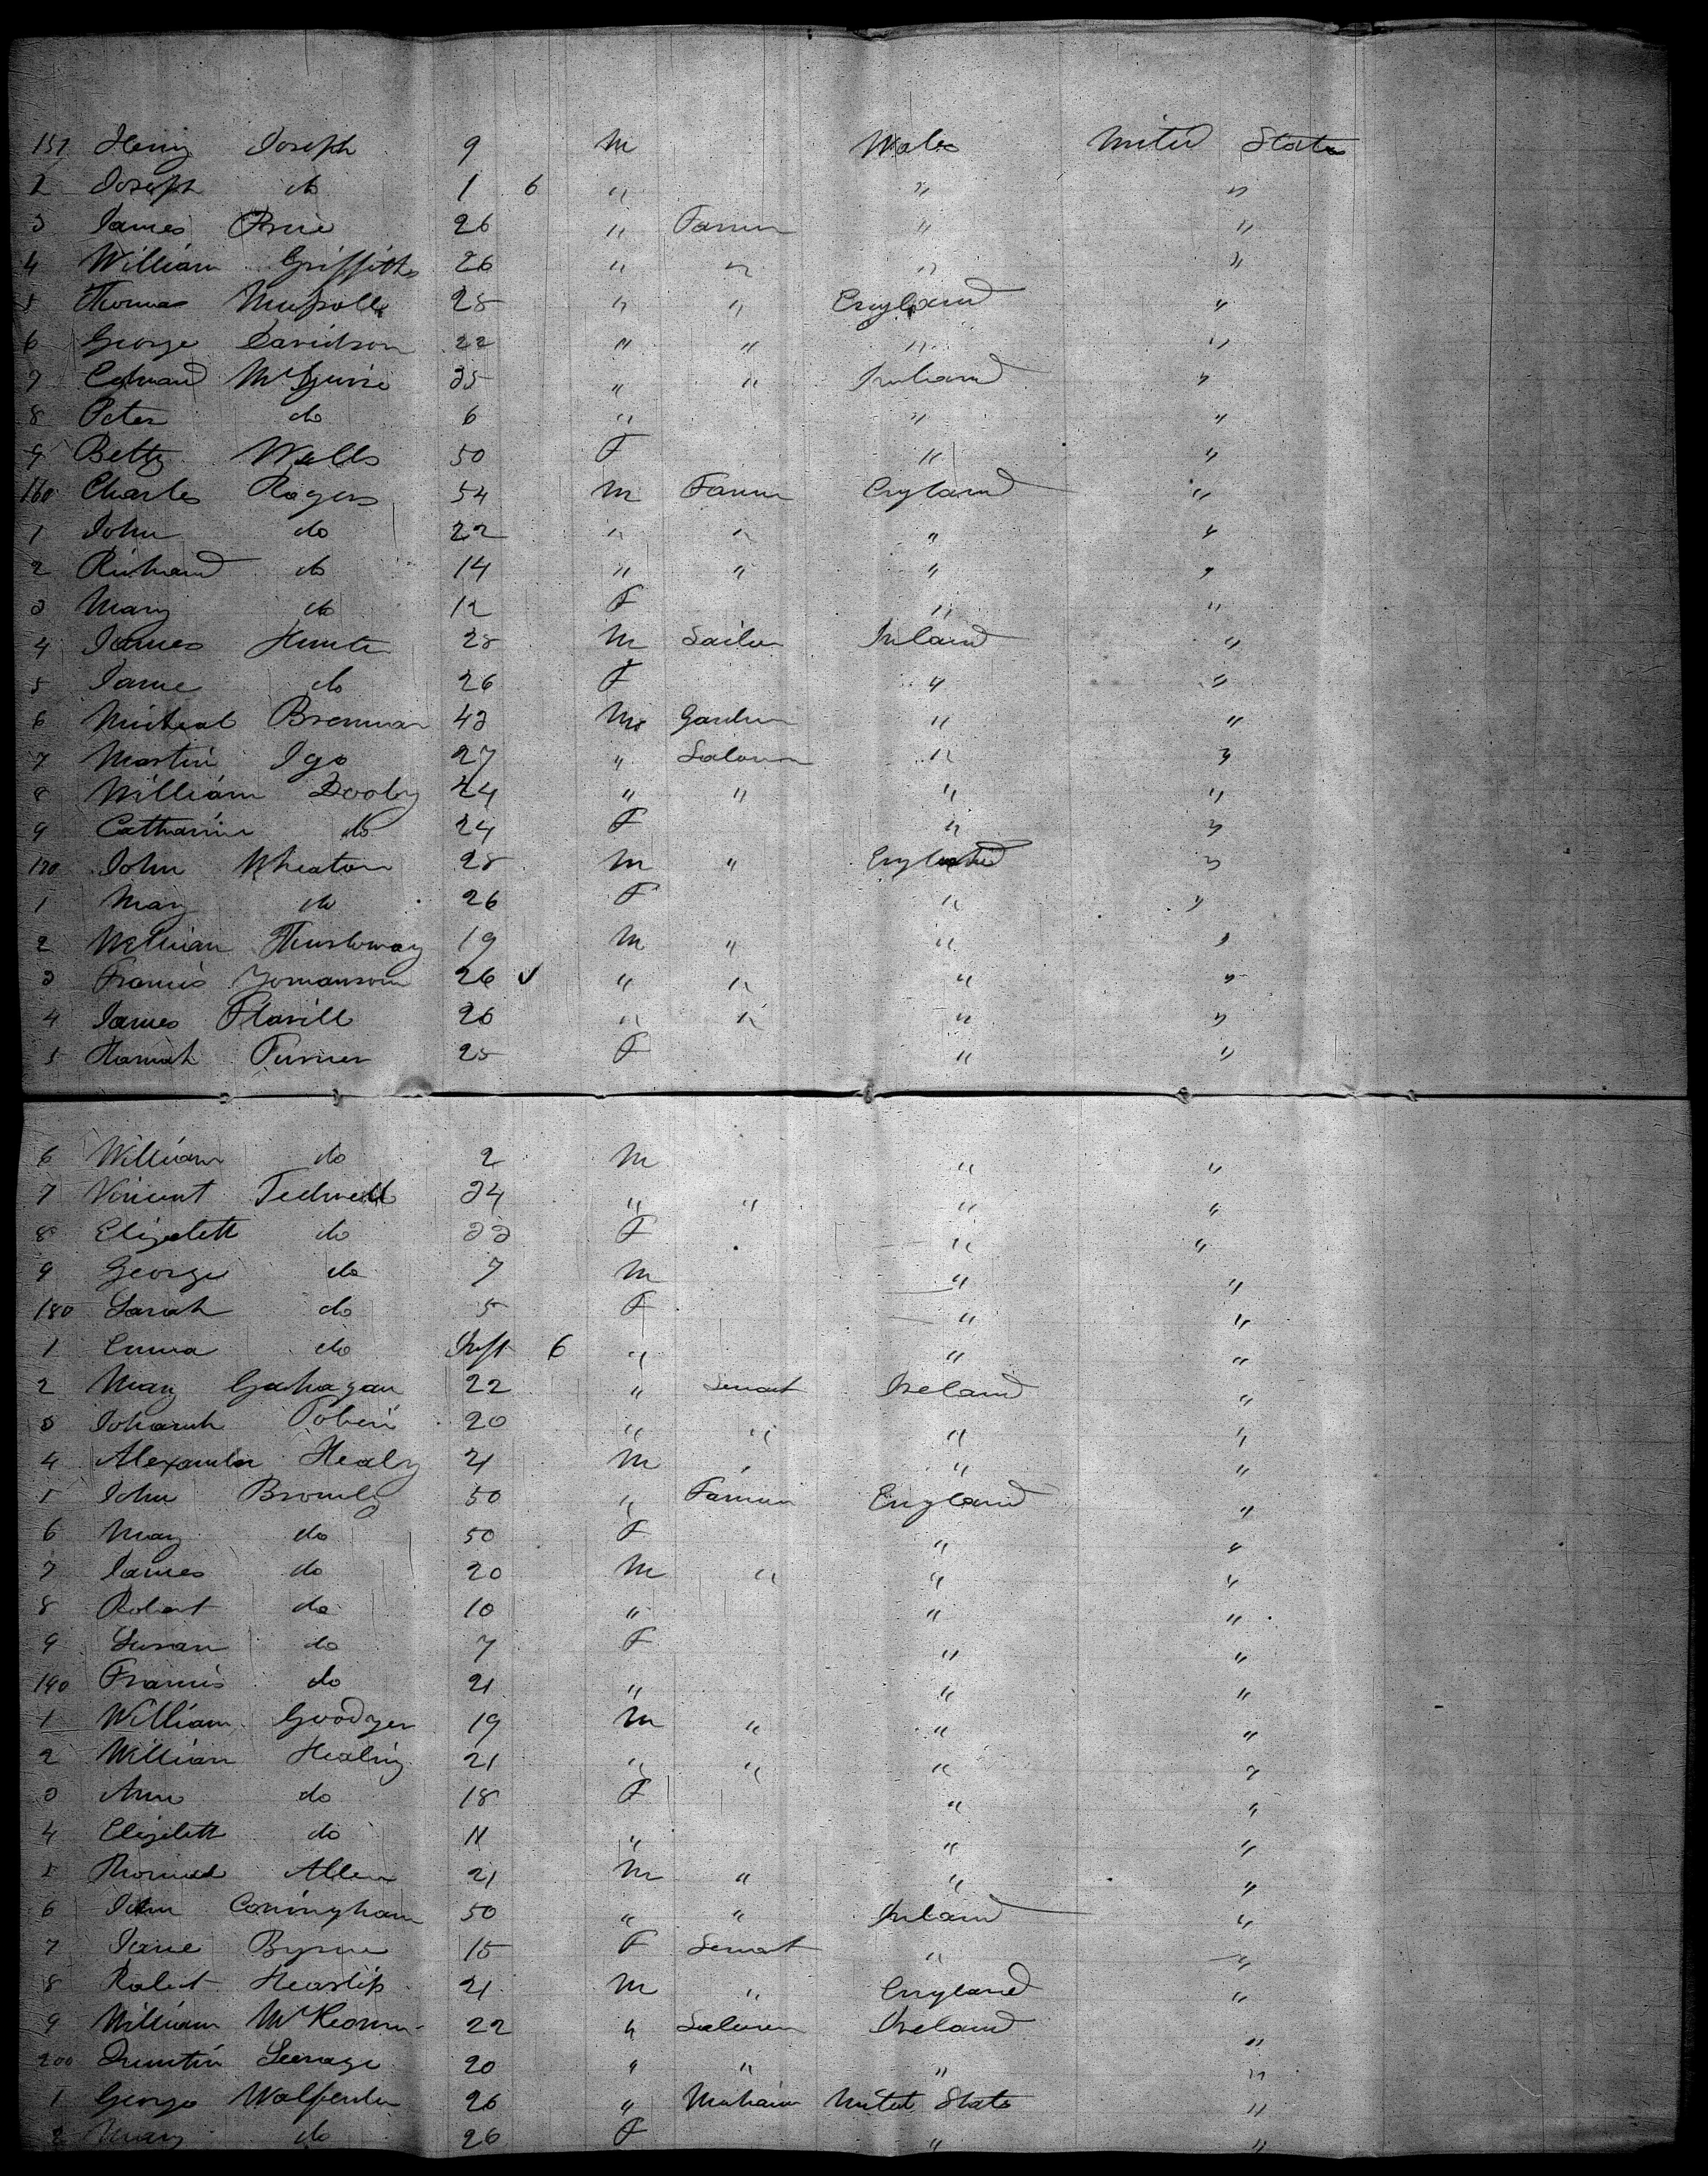 151 Henry Joseph 9 M Wales United States
2 Joseph do 1 6 " " "
3 James Price 26 " Farmer " "
4 William Griffiths 26 " " " "
5 Thomas 28 " " England "
6 George Davidson 22 " " " "
7 Edward McGuire 35 " " Ireland "
8 Peter do 6 " " "
9 Betty Wells 50 F " "
160 Charles Rogers 54 M Farmer England "
1 John do 22 " " " "
2 Richard do 14 " " " "
3 Mary do 12 F " "
4 James Hunter 28 M Sailor Ireland "
5 Jane do 26 F " "
6 Micheal Brennan 43 M " "
7 Martin Igo 27 " Laborer " "
8 William Dooly 24 " " " "
9 Catharine do 24 F " "
170 John Wheaton 28 M " England "
1 Mary do 26 F " "
2 William 19 M " " "
3 Francis 26 " " " "
4 James Flavill 26 " " " "
5 Hannah Turner 25 F " "
6 William do 2 M " "
7 Vincent Tedwell 34 " " " "
8 Elizabeth do 33 F " "
9 George do 7 M " "
180 Sarah do 5 F " "
1 Emma do Inft 6 " " "
2 Mary Gahagan 22 " Servant Ireland "
3 Johanah Tobin 20 " " " "
4 Alexander Healy 21 M " " "
5 John Bromly 50 " Farmer England "
6 Mary do 50 F " "
7 James do 20 M " " "
8 Robert do 10 " " "
9 Susan do 7 F " "
190 Francis do 21 " " "
1 William Goodyer 19 M " " "
2 William Healing 21 " " " "
3 Ann do 18 F " "
4 Elizabeth do 11 " " "
5 Thomas Allen 21 M " " "
6 John Coningham 50 " " Ireland "
7 Jane Byrne 15 F Servant " "
8 Robert Heaslip 21 M " England "
9 William McKeown 22 " Laborer Ireland "
200 Quintin 20 " " " "
1 George Walfenden 26 " United States "
2 Mary do 26 F " "